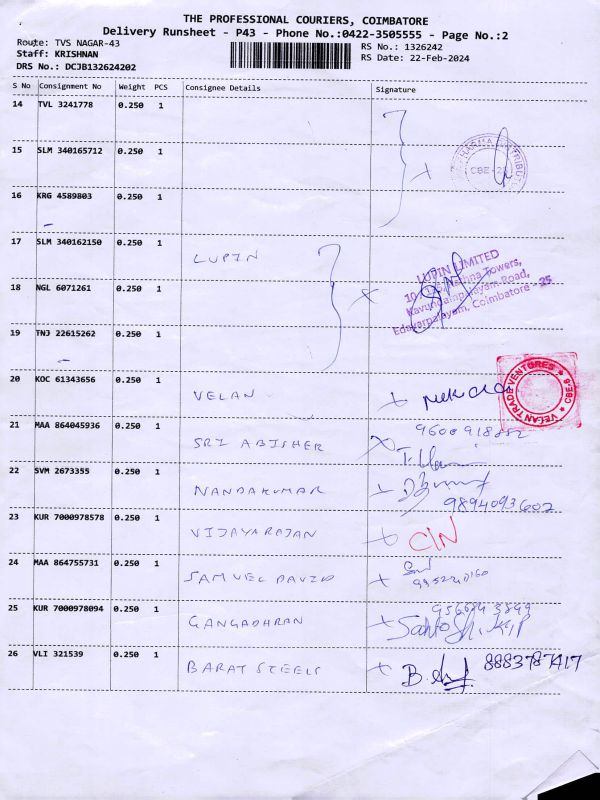 THE PROFESSIONAL COURIERS, COIMBATORE
Delivery Runsheet - P43 - Phone No.:0422-3505555 - Page No.:2
Route: TVS NAGAR-43
Staff: KRISHNAN
DRS No.: DCJB132624202
RS No.: 1326242
RS Date: 22-Feb-2024
S No Consignment No Weight PCS Consignee Details Signature
14 TVL 3241778 0.250 1
15 SLM 340165712 0.250 1
CBE-25
16 KRG 4589803 0.250 1
17 SLM 340162150 0.250 1 LUPIN
LUPIN LIMITED
Towers,
Kavundampalayam Road,
Edayarpalayam, Coimbatore - 25
18 NGL 6071261 0.250 1
19 TNJ 22615262 0.250 1
20 KOC 61343656 0.250 1 VELAN
VELAN TRADE VENTURES * CBE-6 *
21 MAA 864045936 0.250 1 SRI ABISHER
22 SVM 2673355 0.250 1 NANDAKUMAR
9894093602
23 KUR 7000978578 0.250 1 VIJAYARAJAN
C/N
24 MAA 864755731 0.250 1 SAMUEL DAVID
25 KUR 7000978094 0.250 1 GANGADHRAN
Santosh.
26 VLI 321539 0.250 1 BARAT STEELS
8883787417